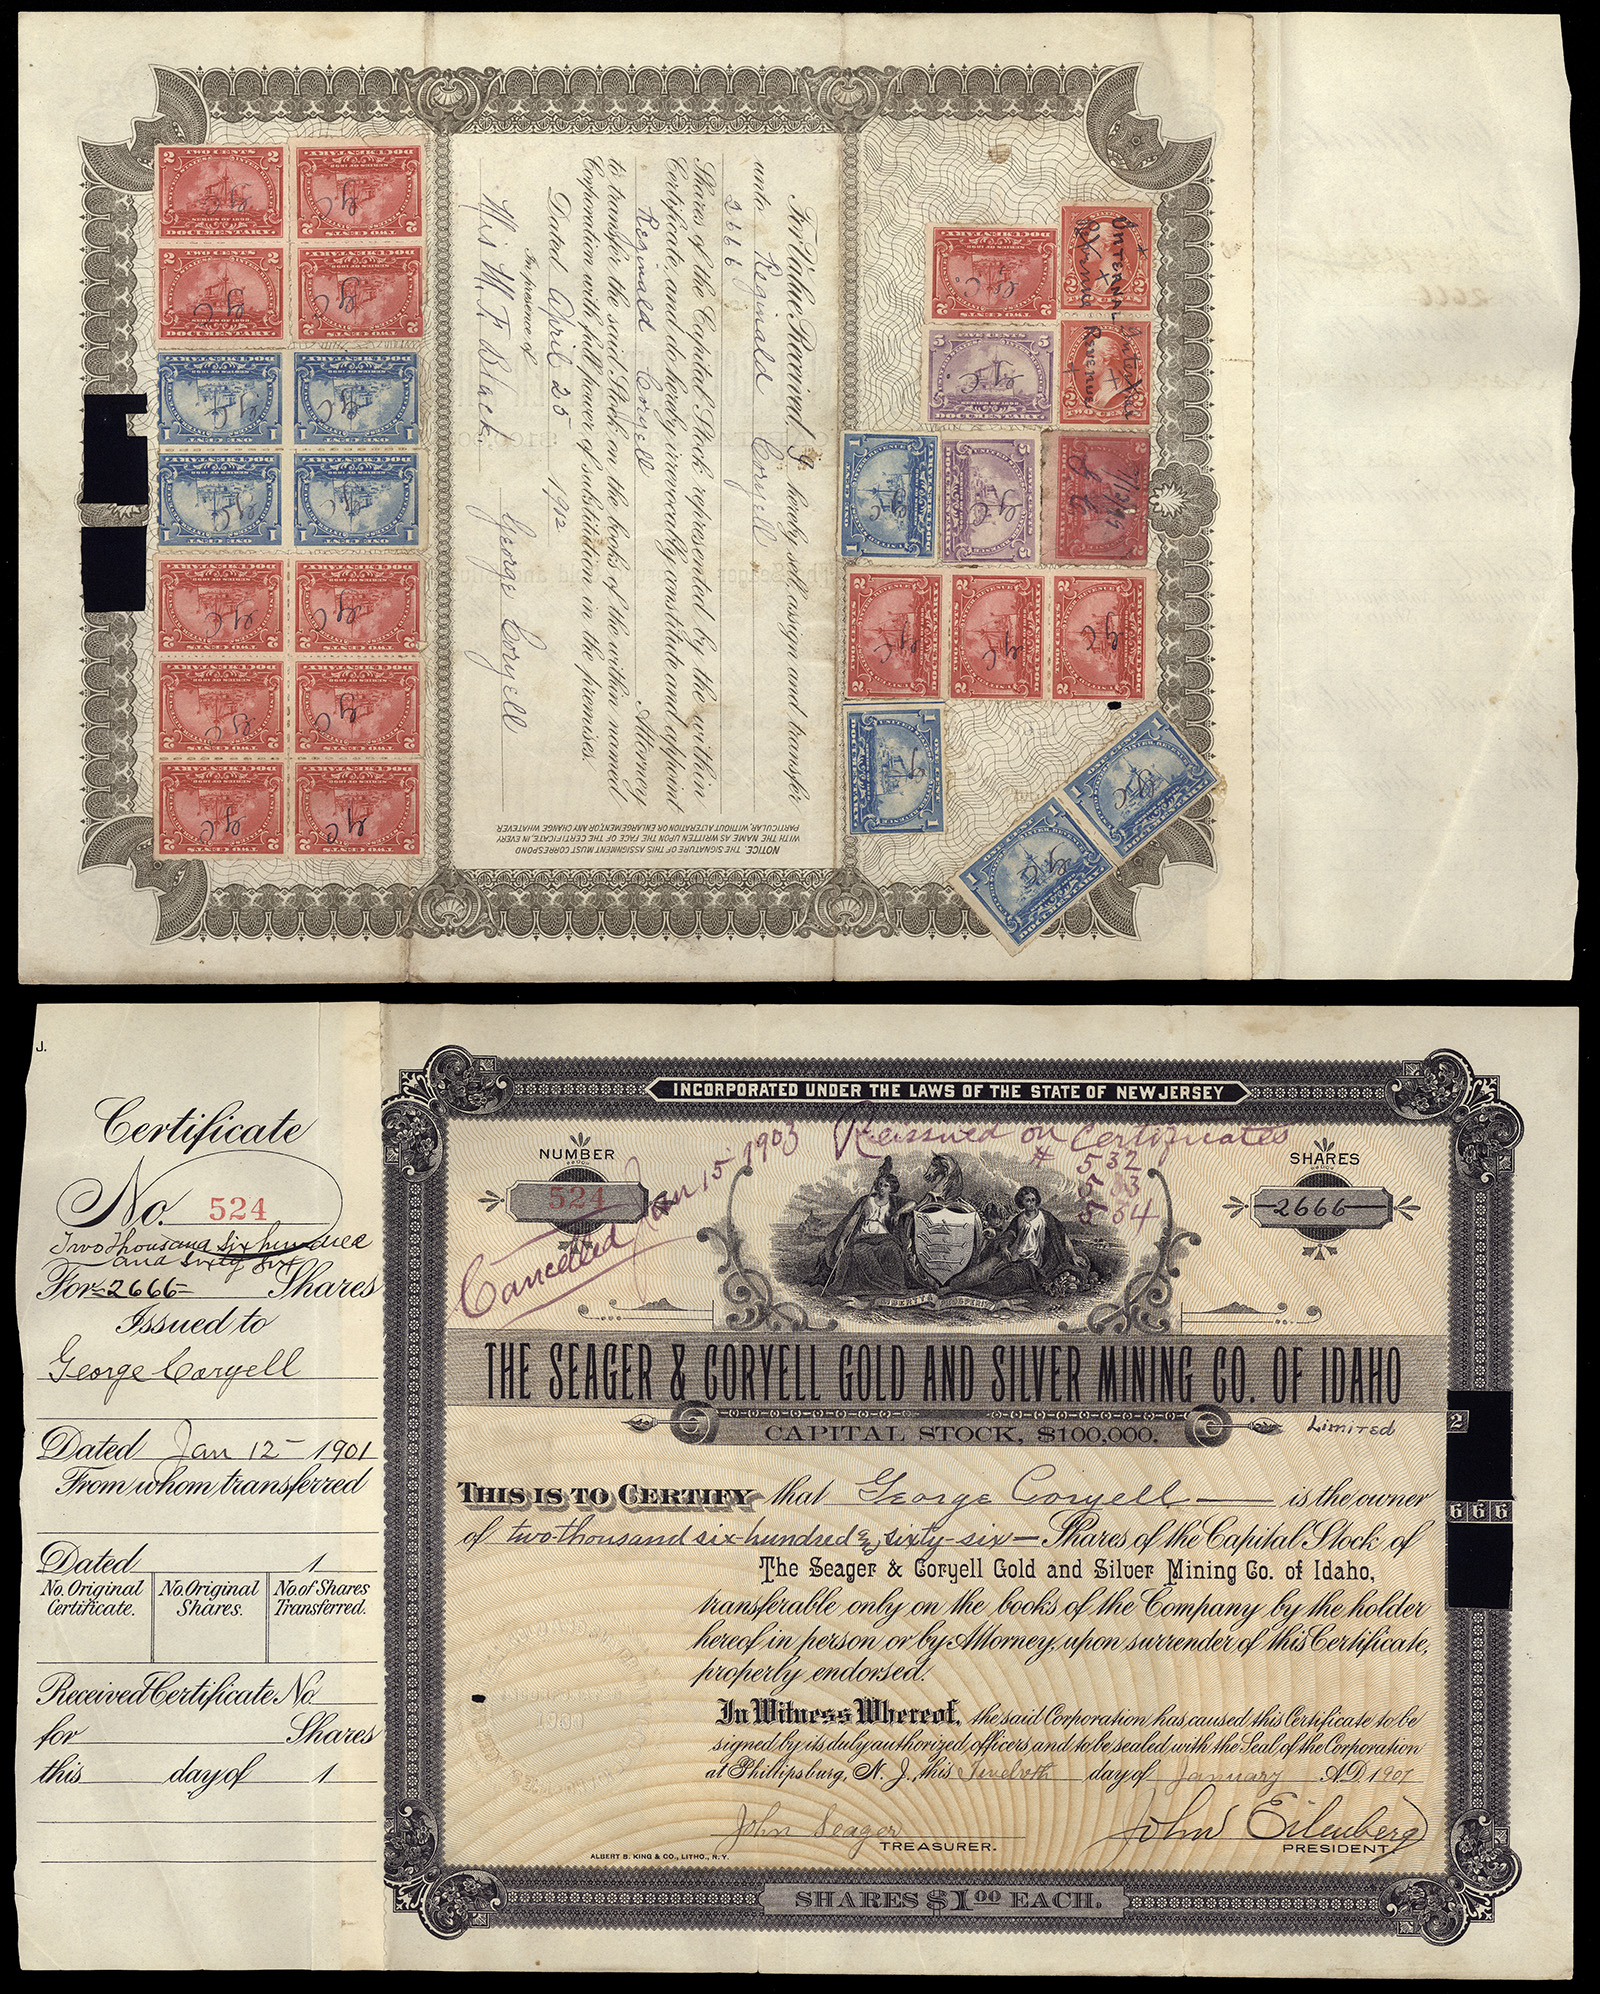 For Value Received, I hereby sell, assign and transfer
unto Reginald Coryell
2666
Shares of the Capital Stock represented by the within
Certificate, and do hereby irrevocably constitute and appoint
Reginald Coryell Attorney
to transfer the said Stock on the books of the within named
Corporation with full power of substitution in the premises.
Dated April 25 1912
In presence of
George Coryell
Mis M. F. Black
NOTICE. THE SIGNATURE OF THIS ASSIGNMENT MUST CORRESPOND
WITH THE NAME AS WRITTEN UPON THE FACE OF THE CERTIFICATE, IN EVERY
PARTICULAR, WITHOUT ALTERATION OR ENLARGEMENT, OR ANY CHANGE WHATEVER
TWO CENTS
SERIES OF 1898
DOCUMENTARY
ONE CENT
DOCUMENTARY
INTERNAL REVENUE
J.
Certificate
No. 524
Two thousand six hundred
and sixty six
For 2666 Shares
Issued to
George Coryell
Dated Jan 12 - 1901
From whom transferred
Dated 1
No. Original Certificate.
No. Original Shares.
No. of Shares Transferred.
Received Certificate No.
for Shares
this day of 1
INCORPORATED UNDER THE LAWS OF THE STATE OF NEW JERSEY
Cancelled Jan 15 - 1903 Reissued on Certificates
# 532
533
534
NUMBER
524
SHARES
2666
LIBERTY & PROSPERITY
THE SEAGER & CORYELL GOLD AND SILVER MINING CO. OF IDAHO
Limited
CAPITAL STOCK, $100,000.
THIS IS TO CERTIFY that George Coryell is the owner
of two-thousand six-hundred & sixty-six Shares of the Capital Stock of
The Seager & Coryell Gold and Silver Mining Co. of Idaho,
transferable only on the books of the Company by the holder
hereof in person or by Attorney, upon surrender of this Certificate,
properly endorsed.
In Witness Whereof, the said Corporation has caused this Certificate to be
signed by its duly authorized officers and to be sealed with the Seal of the Corporation
at Phillipsburg, N. J., this Twelvth day of January A.D. 1901
John Seager
TREASURER.
John Eilenberg
PRESIDENT
ALBERT B. KING & CO., LITHO., N.Y.
2
666
SHARES $1.00 EACH.